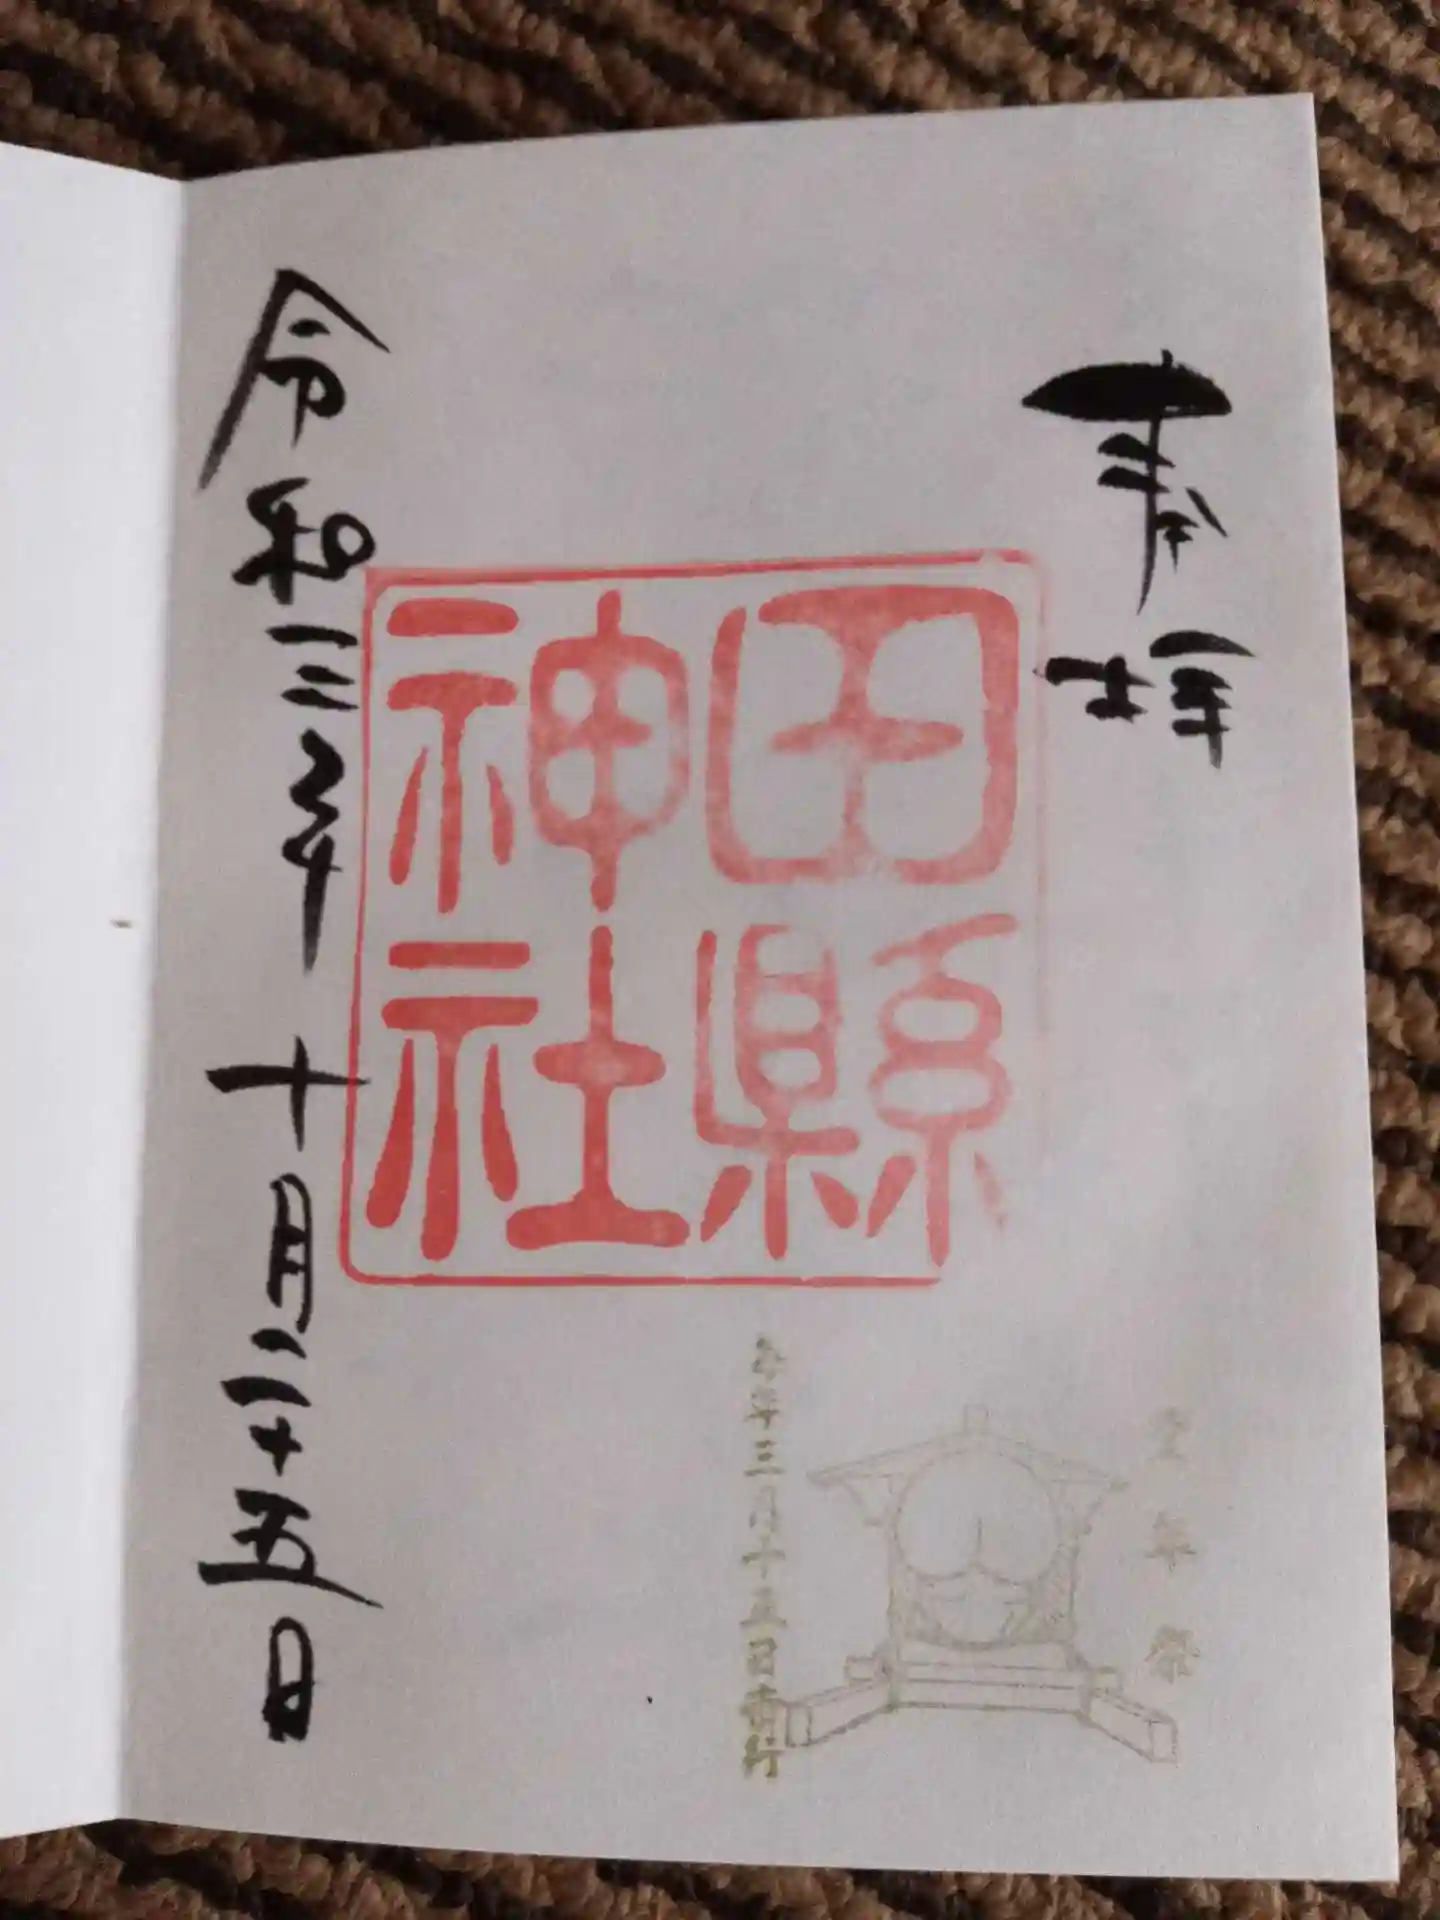 奉拝
田縣神社
令和三年 十月二十五日
豊年祭
毎年三月十五日斎行